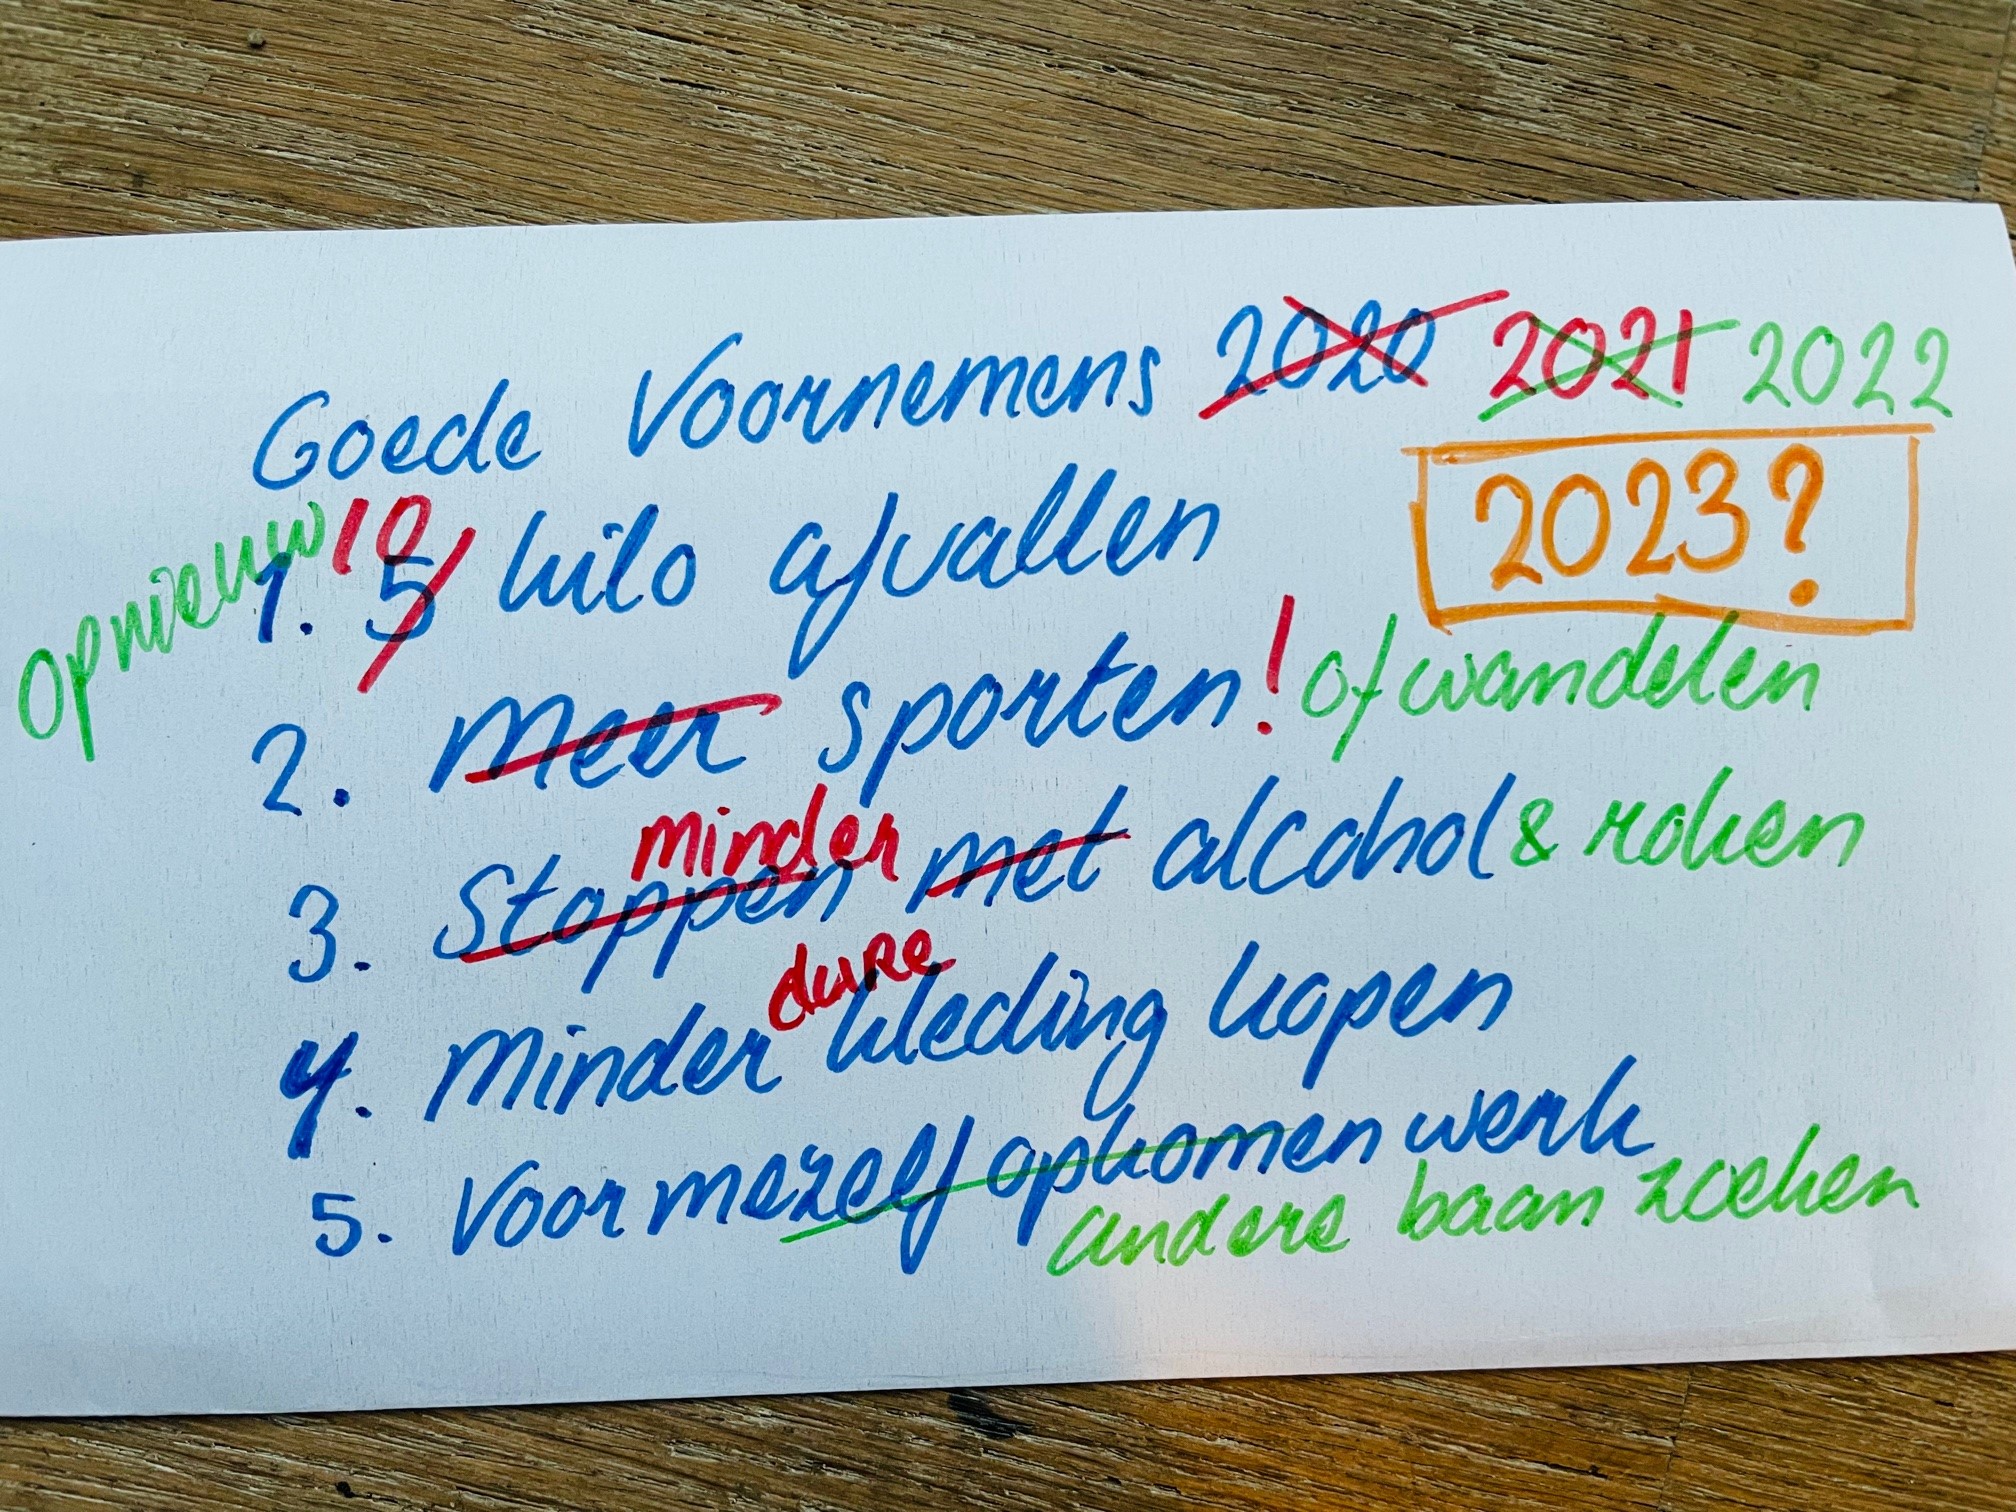 Goede Voornemens 2020 2021 2022
2023?
opnieuw 10
1. 5 kilo afvallen
2. Meer sporten! of wandelen
minder
3. Stoppen met alcohol & roken
dure
4. Minder kleding kopen
5. Voor mezelf opkomen werk
andere baan zoeken